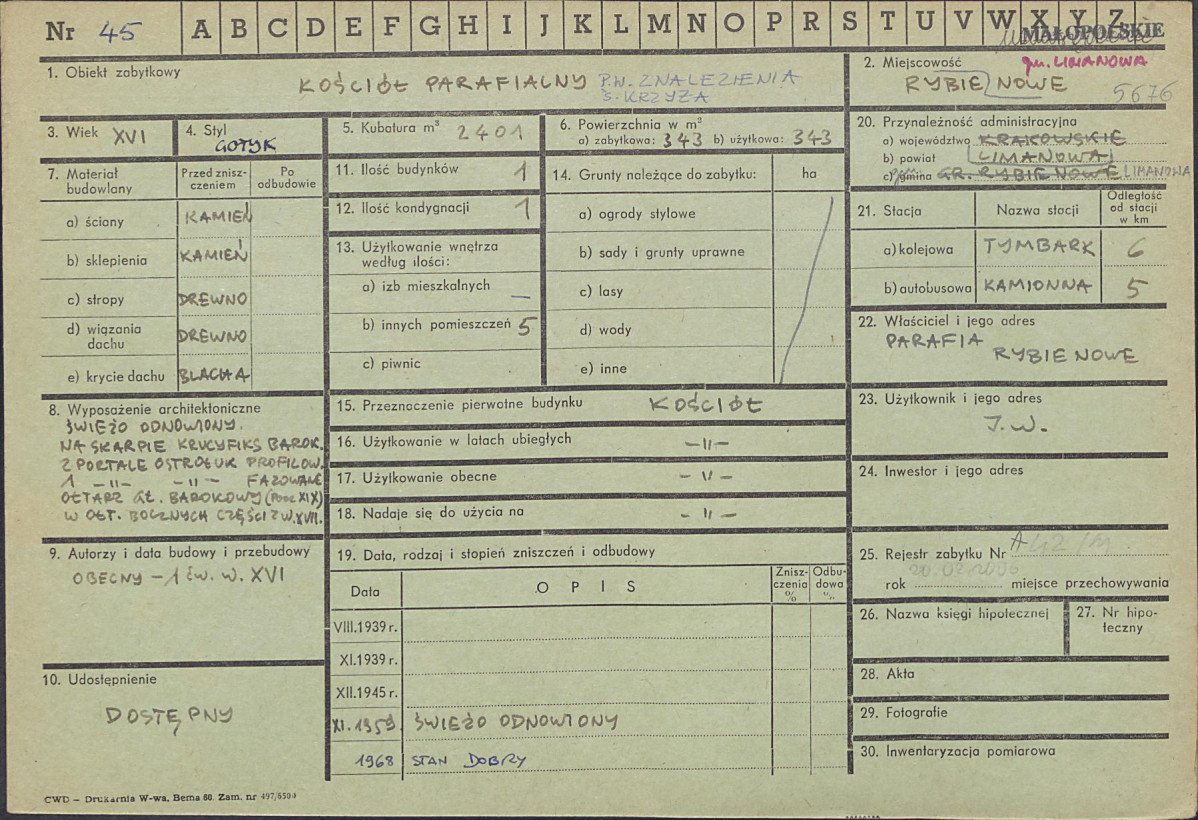 Nr 45 A B C D E F G H I J K L M N O P R S T U V W X Y Z
MAŁOPOLSKIE
1. Obiekt zabytkowy
KOŚCIÓŁ PARAFIALNY P.W. ZNALEZIENIA
Ś. KRZYŻA
2. Miejscowość gm. LIMANOWA
RYBIE NOWE 5676
3. Wiek XVI
4. Styl
GOTYK
5. Kubatura m³ 2401
6. Powierzchnia w m²
a) zabytkowa: 343 b) użytkowa: 343
7. Materiał budowlany
Przed zniszczeniem
Po odbudowie
a) ściany KAMIEŃ
b) sklepienia KAMIEŃ
c) stropy DREWNO
d) wiązania dachu DREWNO
e) krycie dachu BLACHA
11. Ilość budynków 1
12. Ilość kondygnacji 1
13. Użytkowanie wnętrza
według ilości:
a) izb mieszkalnych —
b) innych pomieszczeń 5
c) piwnic
14. Grunty należące do zabytku: ha
a) ogrody stylowe
b) sady i grunty uprawne
c) lasy
d) wody
e) inne
20. Przynależność administracyjna
a) województwo KRAKOWSKIE
b) powiat LIMANOWA
c) gmina GR. RYBIE NOWE LIMANOWA
21. Stacja Nazwa stacji Odległość od stacji w km
a) kolejowa TYMBARK 6
b) autobusowa KAMIONNA 5
22. Właściciel i jego adres
PARAFIA
RYBIE NOWE
8. Wyposażenie architektoniczne
ŚWIEŻO ODNOWIONY.
NA SKARPIE KRUCYFIKS BAROK.
2 PORTALE OSTROŁUK PROFILOW.
1 —"— —"— FAZOWANE
OŁTARZ GŁ. BAROKOWY (POCZ XIX)
W OŁT. BOCZNYCH CZĘŚCI Z W. XVII.
15. Przeznaczenie pierwotne budynku KOŚCIÓŁ
16. Użytkowanie w latach ubiegłych —"—
17. Użytkowanie obecne —"—
18. Nadaje się do użycia na —"—
23. Użytkownik i jego adres
J.W.
24. Inwestor i jego adres
9. Autorzy i data budowy i przebudowy
OBECNY – 1 ćw. w. XVI
10. Udostępnienie
DOSTĘPNY
19. Data, rodzaj i stopień zniszczeń i odbudowy
Data OPIS Zniszczenia % Odbudowa %
VIII.1939 r.
XI.1939 r.
XII.1945 r.
XI.1959 ŚWIEŻO ODNOWIONY
1968 STAN DOBRY
25. Rejestr zabytku Nr A-42/M
20.02.2006
rok miejsce przechowywania
26. Nazwa księgi hipotecznej
27. Nr hipoteczny
28. Akta
29. Fotografie
30. Inwentaryzacja pomiarowa
CWD – Drukarnia W-wa, Bema 60. Zam. nr 497/6500